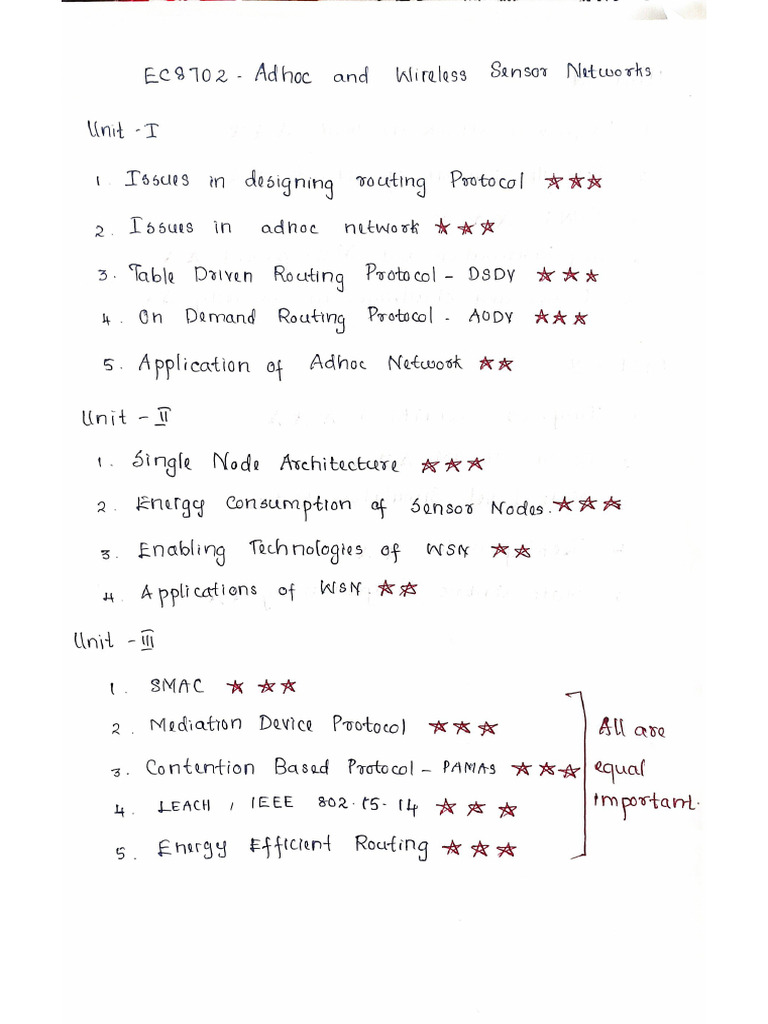 EC8702 - Adhoc and Wireless Sensor Networks.
Unit - I
1 Issues in designing routing Protocol ★★★
2. Issues in adhoc network ★★★
3. Table Driven Routing Protocol - DSDV ★★★
4. On Demand Routing Protocol - AODV ★★★
5. Application of Adhoc Network ★★
Unit - II
1. Single Node Architecture ★★★
2. Energy Consumption of Sensor Nodes. ★★★
3. Enabling Technologies of WSN ★★
4. Applications of WSN. ★★
Unit - III
1. SMAC ★★★
2. Mediation Device Protocol ★★★
3. Contention Based Protocol - PAMAS ★★★
4. LEACH, IEEE 802.15.14 ★★★
5. Energy Efficient Routing ★★★
All are
equal
important.